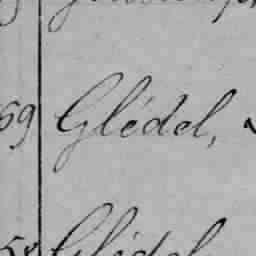 59 Glédel,
58 Glédel